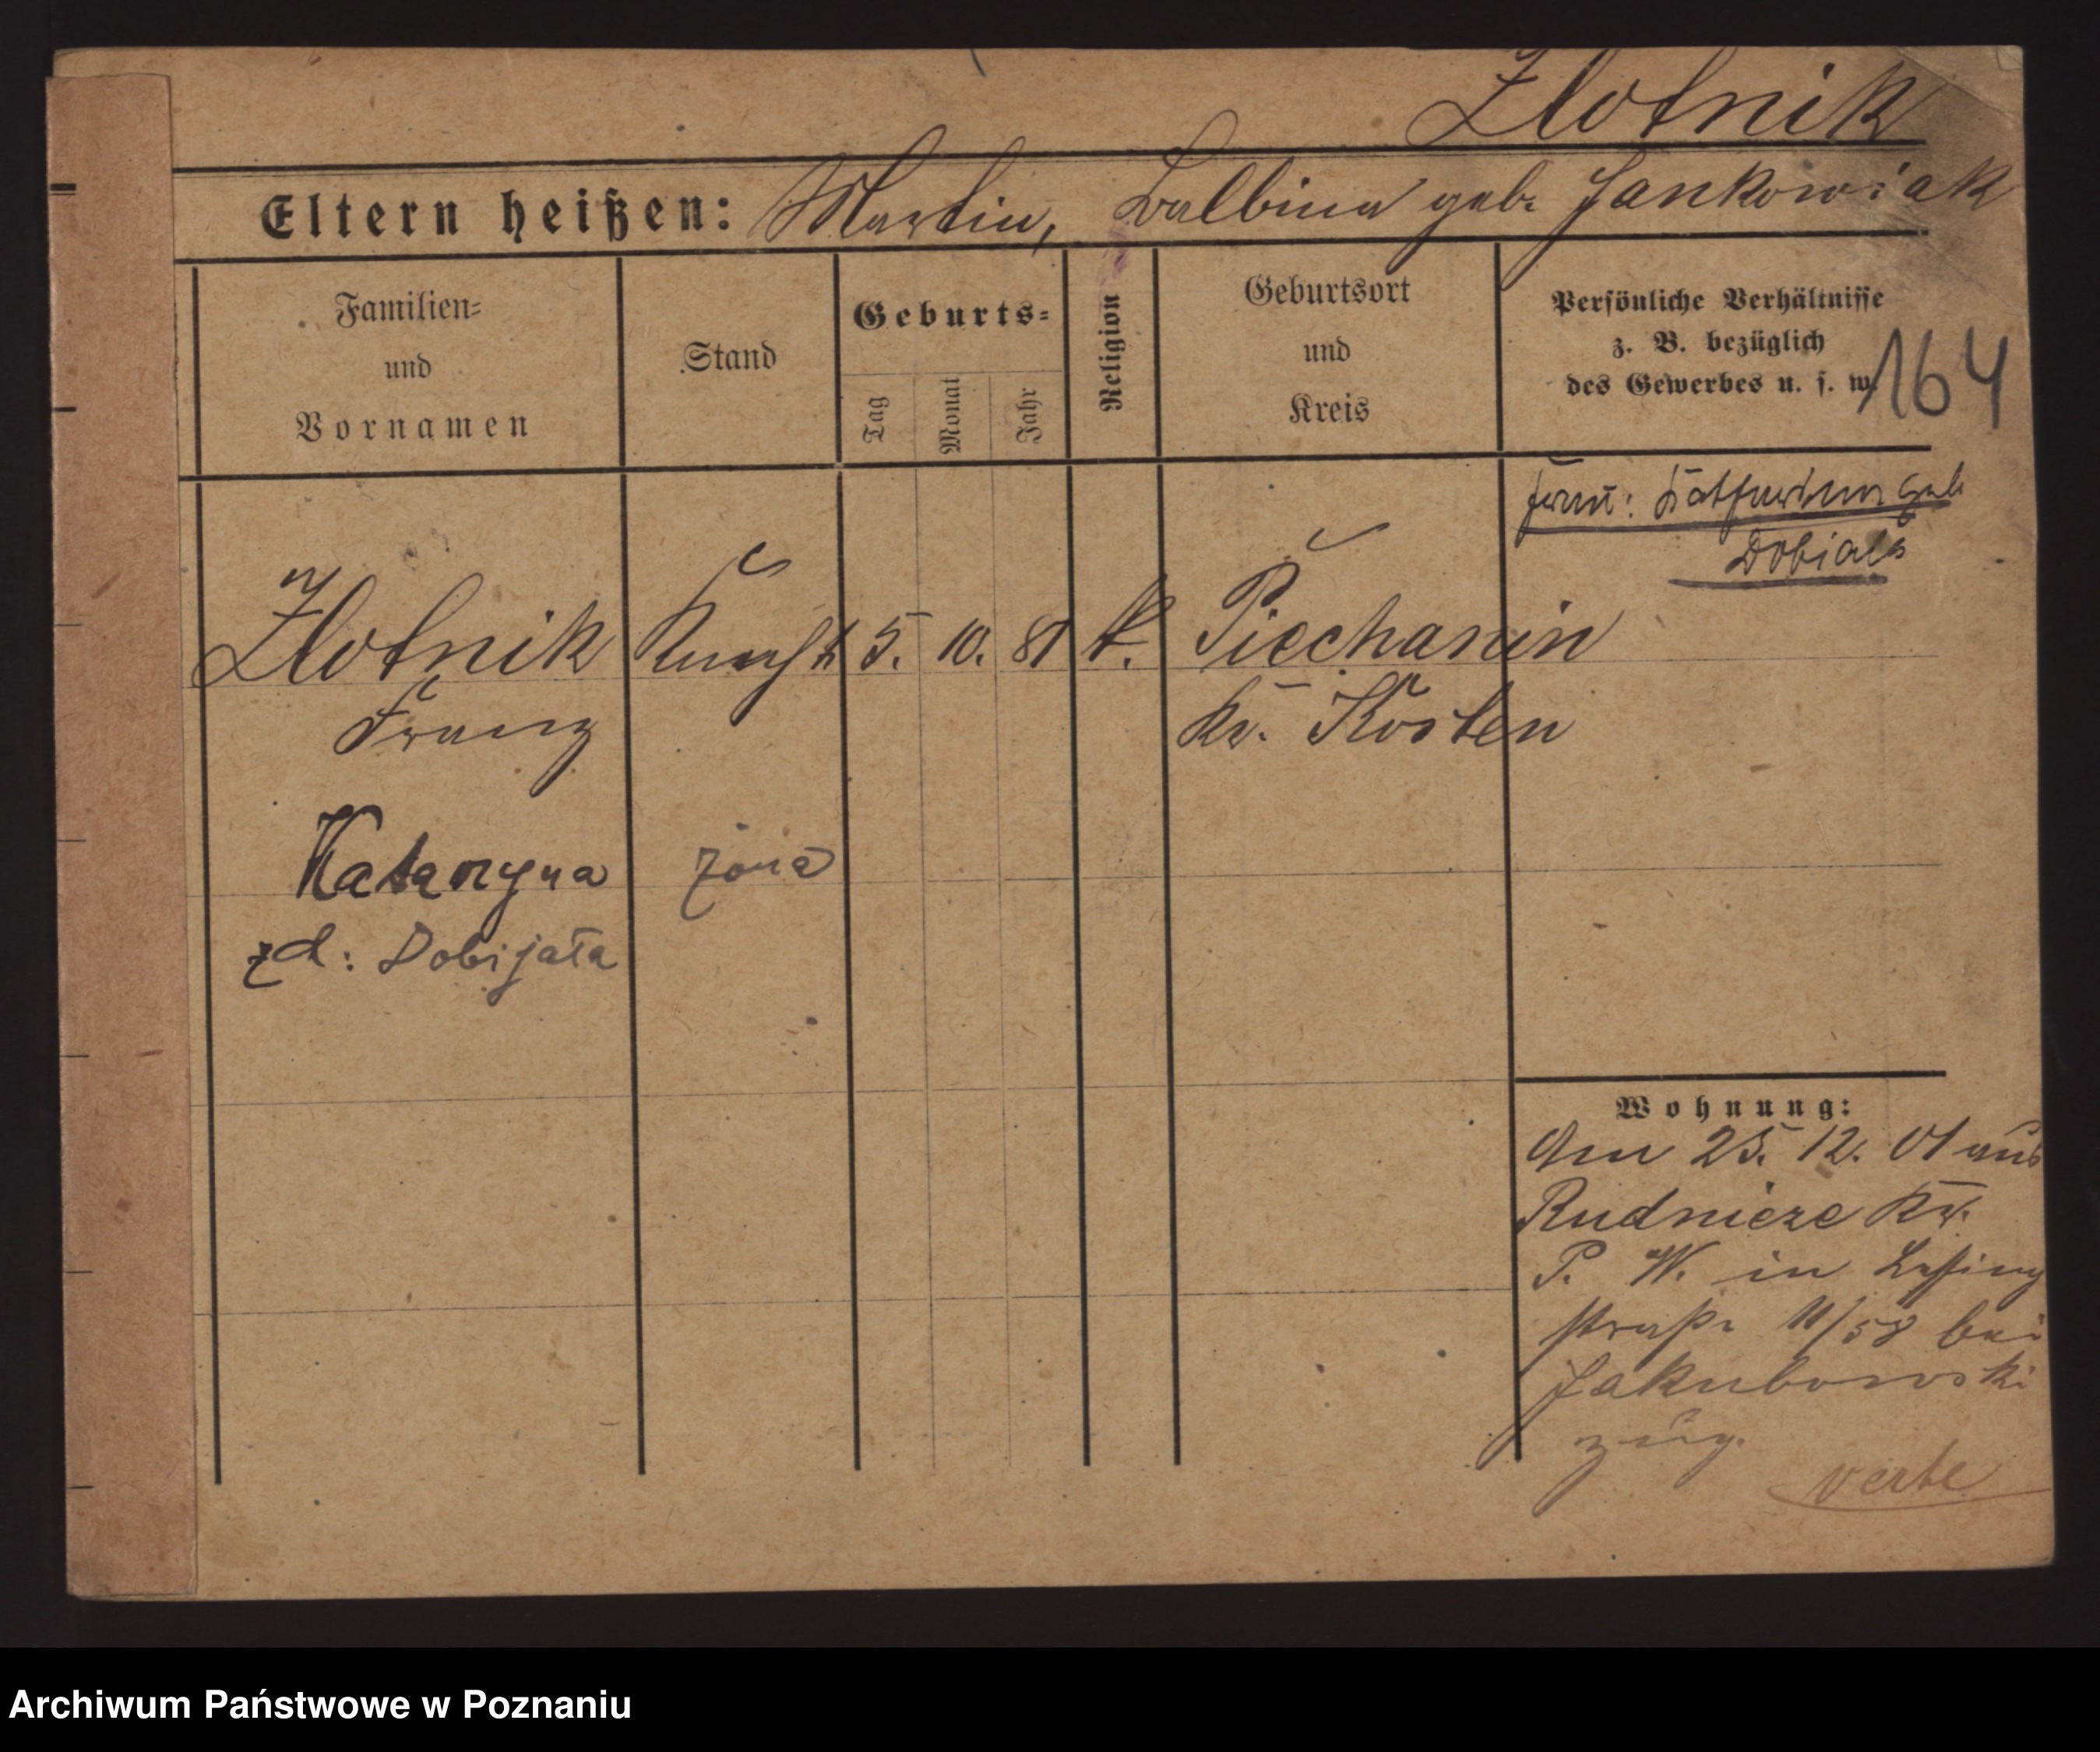 Zlotnik
Eltern heißen: Martin, Balbina geb. Jankowiak
Familien=
und
Vornamen
Stand
Geburts=
Tag
Monat
Jahr
Religion
Geburtsort
und
Kreis
Persönliche Verhältnisse
z. B. bezüglich
des Gewerbes u. s. w.
164
Frau: Katharina geb
Zlotnik Knecht 5. 10. 81 k. Piechanin
Franz Kr. Kosten
Katarzyna żona
zd: Dobijała
Wohnung:
Am 25. 12. 01 aus
Rudnicze Kr.
P. W. in Lessing
straße 11/58 bei
Jakubowski
zug.
verte
Archiwum Państwowe w Poznaniu